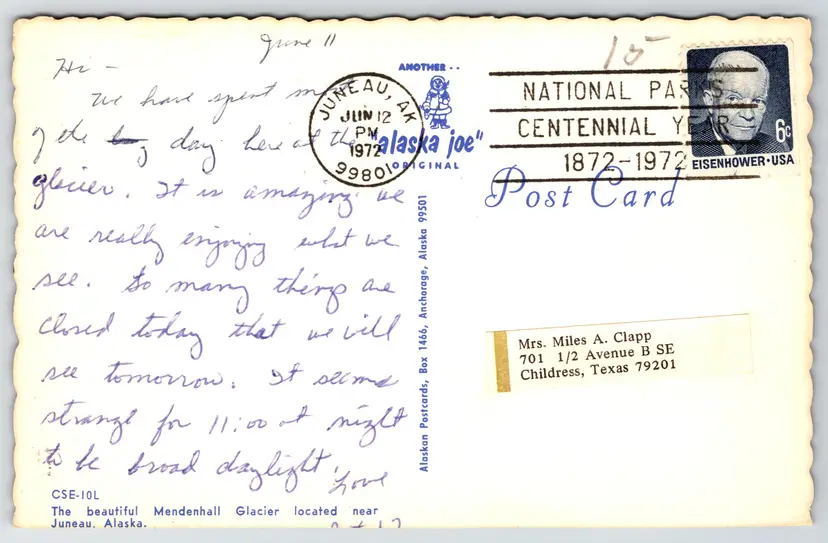 June 11
Hi -
We have spent most
of the day here at the
glacier. It is amazing. We
are really enjoying what we
see. So many things are
closed today that we will
see tomorrow. It seems
strange for 11:00 at night
to be broad daylight.
Love
CSE-10L
The beautiful Mendenhall Glacier located near
Juneau, Alaska.
ANOTHER..
"alaska joe"
ORIGINAL
Alaskan Postcards, Box 1466, Anchorage, Alaska 99501
JUNEAU, AK
JUN 12
PM
1972
99801
15
NATIONAL PARKS
CENTENNIAL YEAR
1872-1972
6c
EISENHOWER·USA
Post Card
Mrs. Miles A. Clapp
701 1/2 Avenue B SE
Childress, Texas 79201